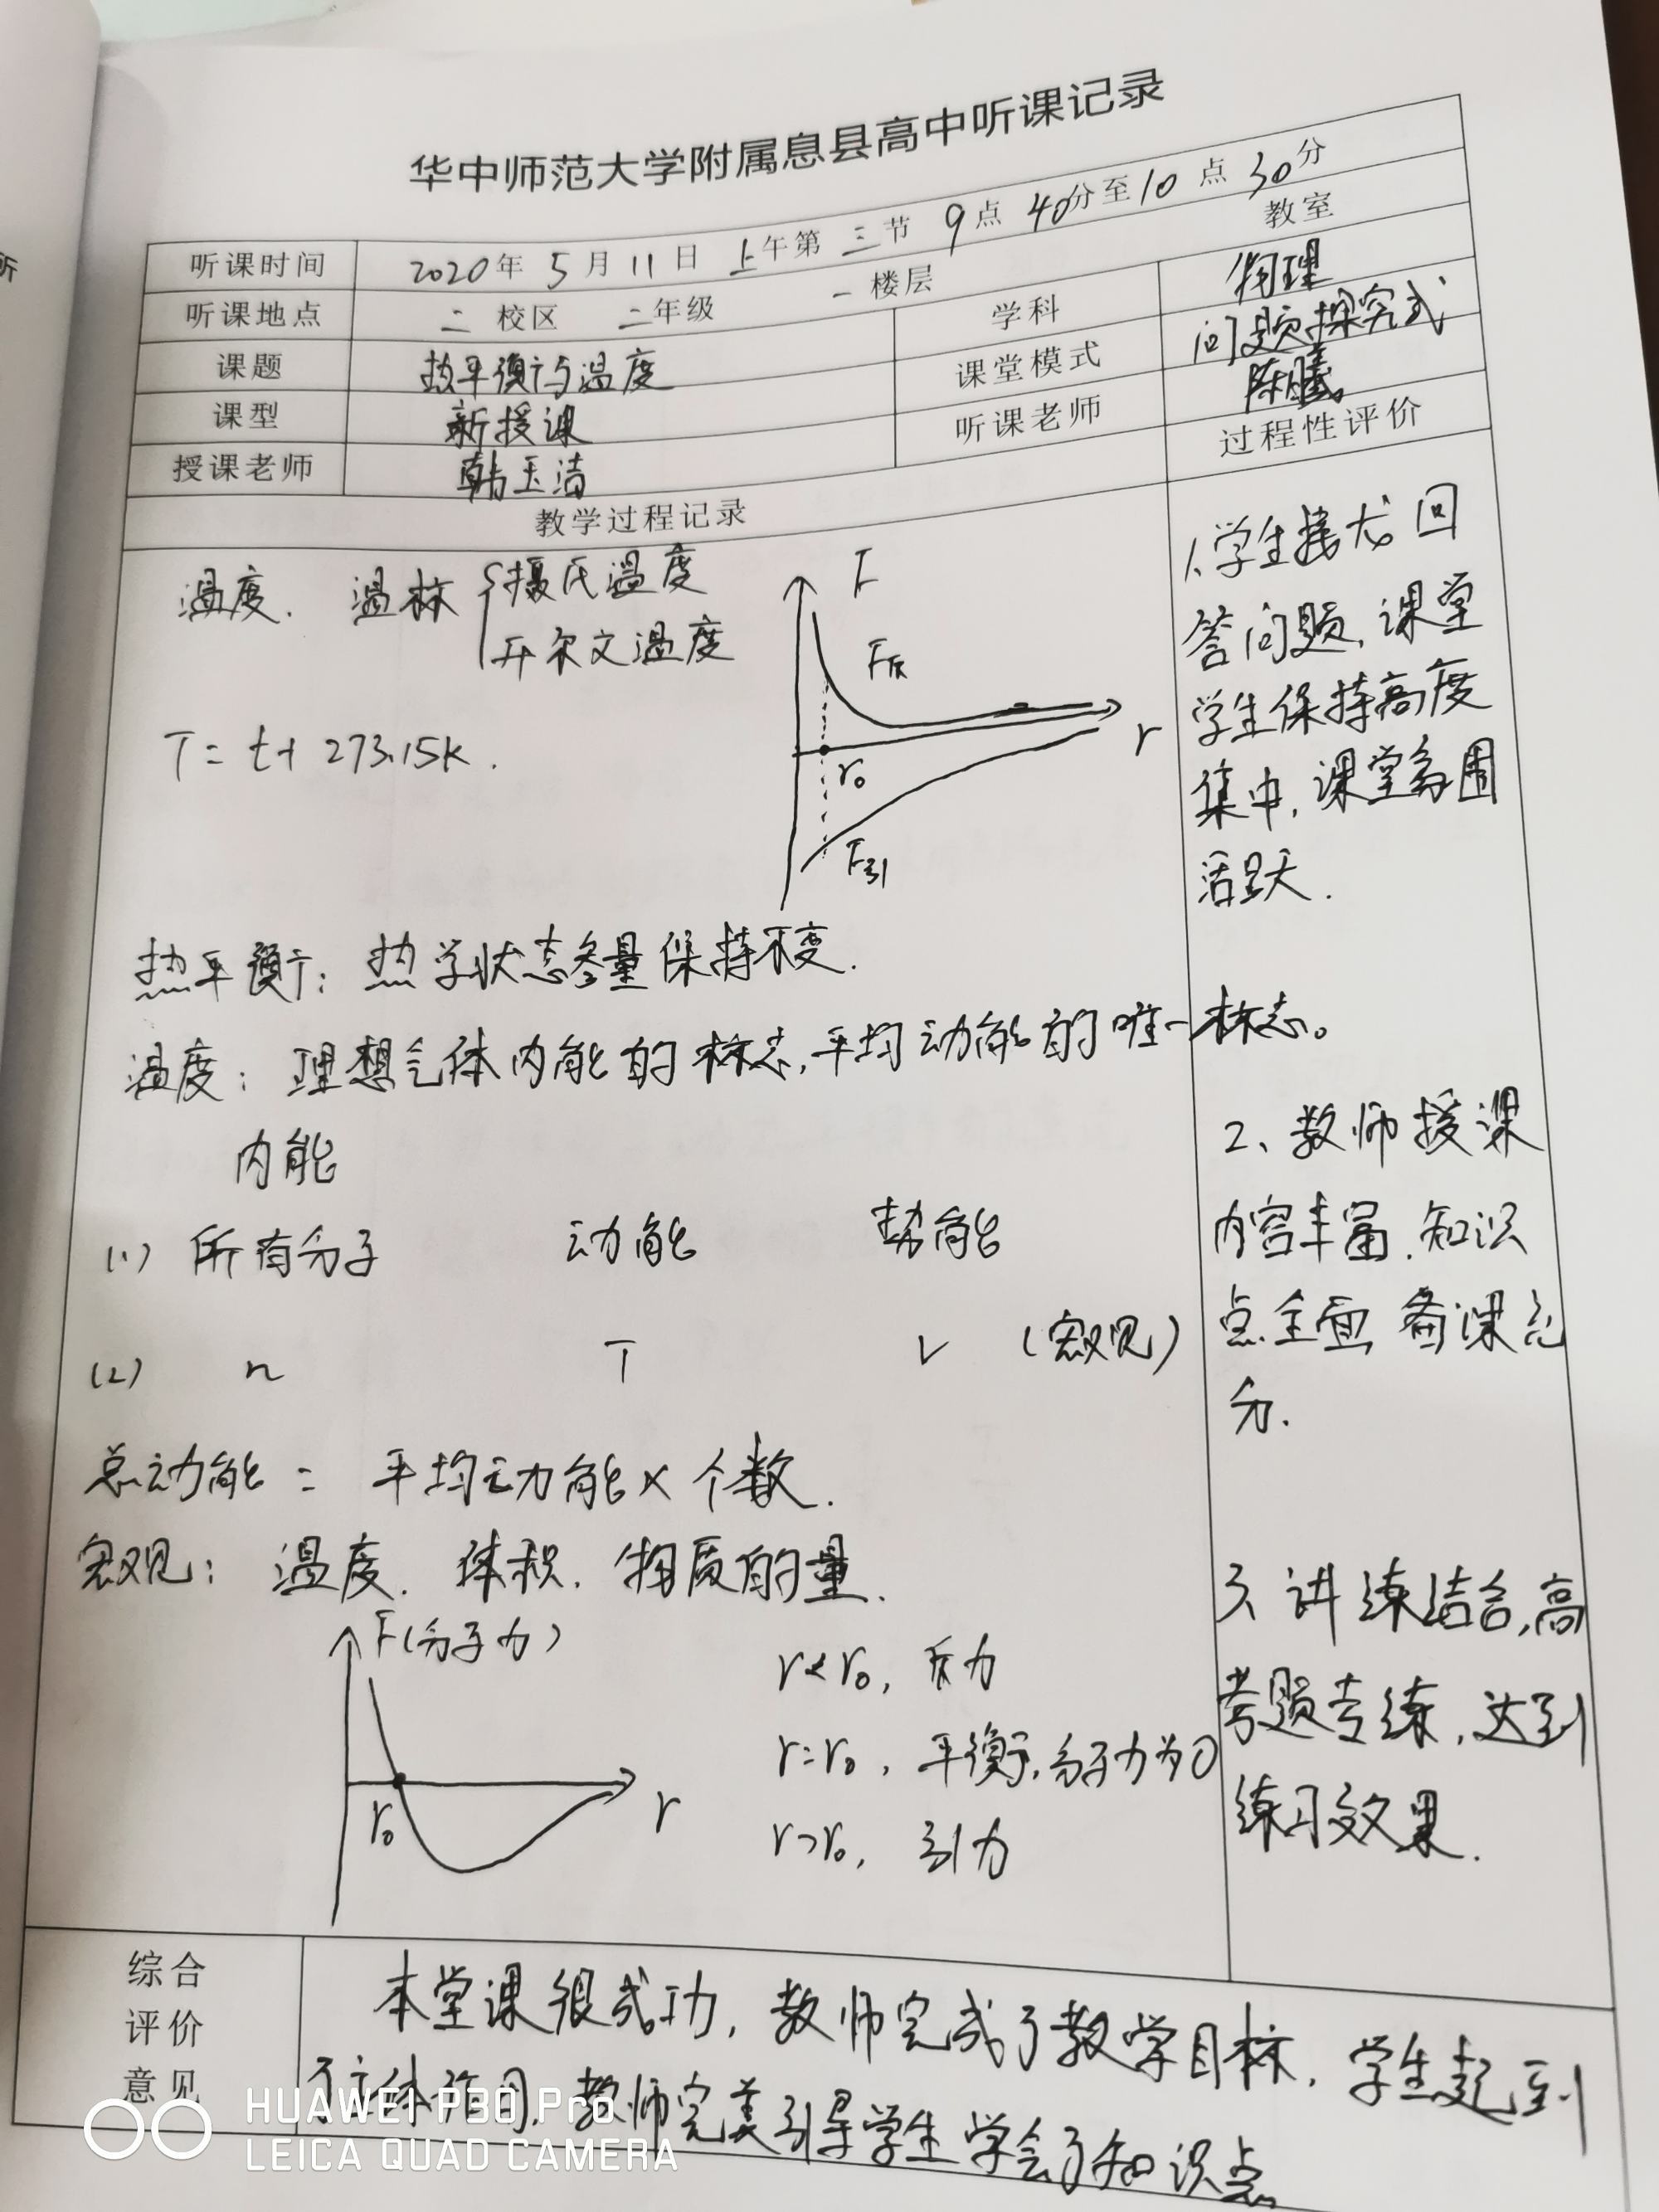 华中师范大学附属息县高中听课记录
听课时间 2020年 5月 11日 上午第 三节 9点 40分至10点 30分
听课地点 二校区 二年级 一楼层 教室
课题 热平衡与温度 学科 物理
课型 新授课 课堂模式 问题探究式
授课老师 韩玉洁 听课老师 陈曦
教学过程记录
温度. 温标 {摄氏温度
开尔文温度
T = t + 273.15K.
F
F斥
r
r₀
F引
热平衡: 热学状态参量保持不变.
温度: 理想气体内能的标志, 平均动能的唯一标志。
内能
(1) 所有分子 动能 势能
(2) n T V (宏观)
总动能 = 平均动能 × 个数.
宏观: 温度. 体积. 物质的量.
F(分子力)
r₀
r
r<r₀, 斥力
r=r₀, 平衡, 分子力为0
r>r₀, 引力
过程性评价
1.学生接龙回
答问题, 课堂
学生保持高度
集中, 课堂氛围
活跃.
2、教师授课
内容丰富. 知识
点全面 备课充
分.
3、讲练结合, 高
考题专练, 达到
练习效果.
综合
评价
意见
本堂课很成功, 教师完成了教学目标, 学生起到
了主体作用, 教师完美引导学生学会了知识点
所
HUAWEI P30 Pro
LEICA QUAD CAMERA